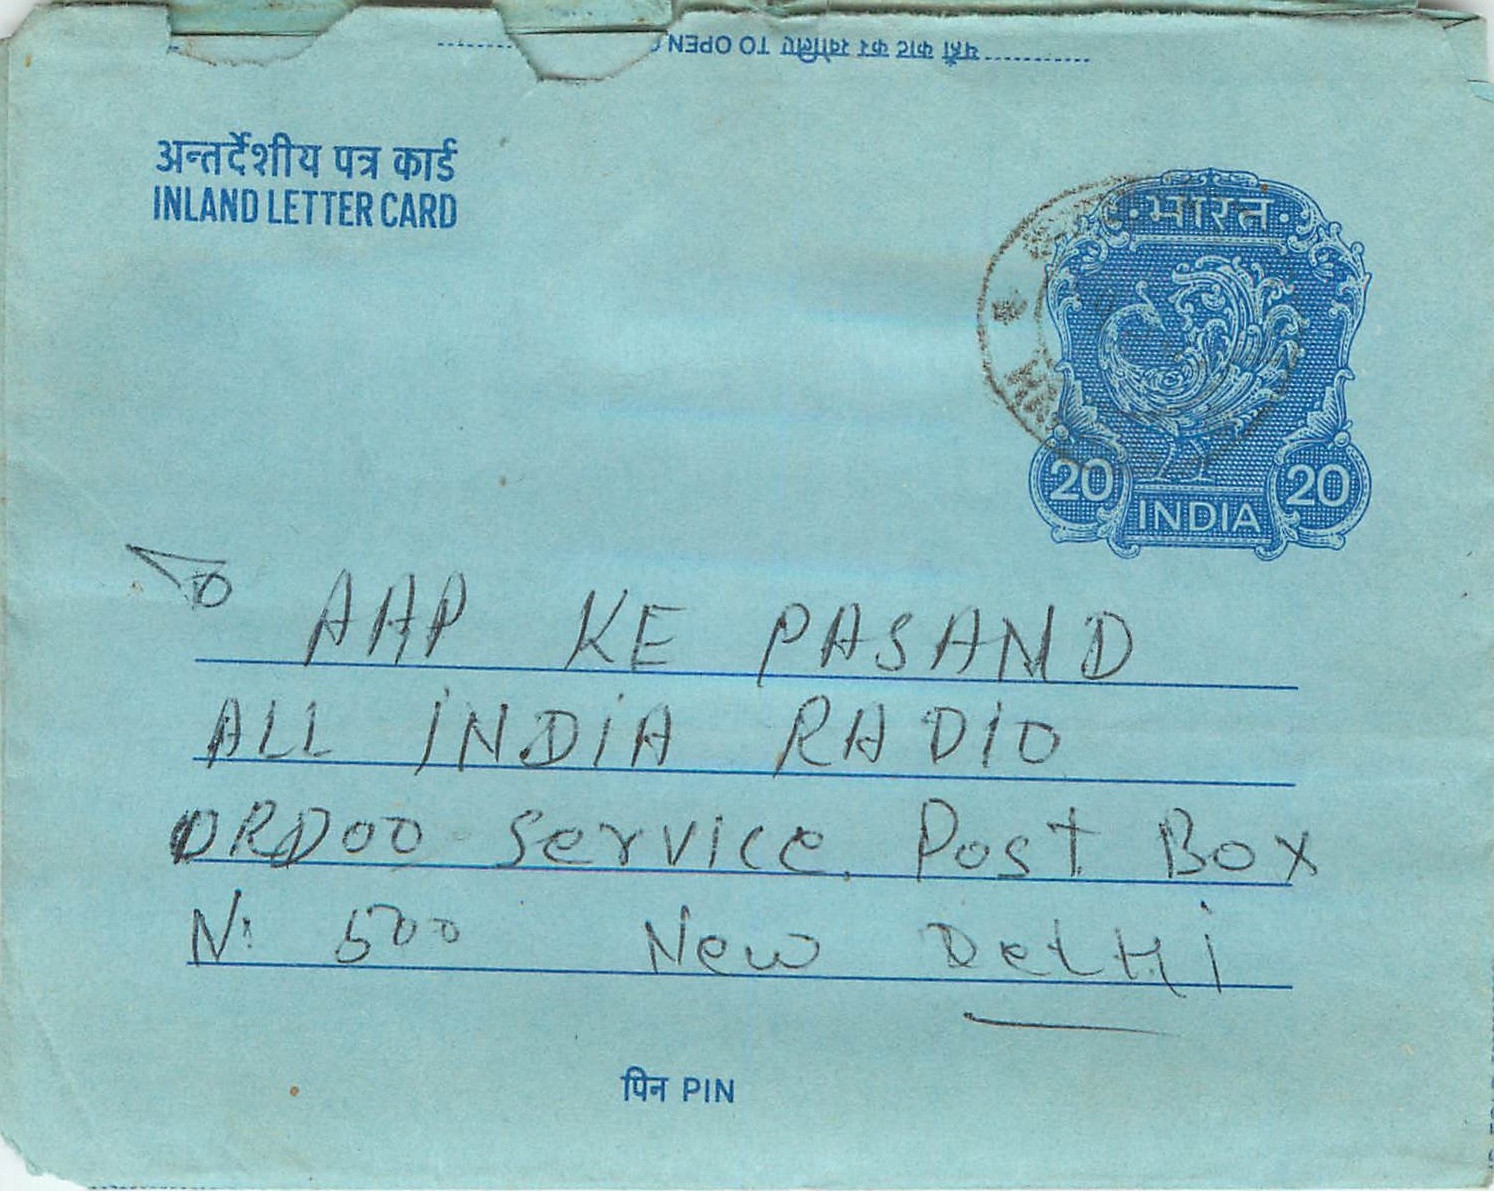 यहाँ काट कर खोलिए TO OPEN
अन्तर्देशीय पत्र कार्ड
INLAND LETTER CARD
भारत
20 20
INDIA
To AAP KE PASAND
ALL INDIA RADIO
ORDOO Service. Post Box
N: 500 New DelHi
पिन PIN